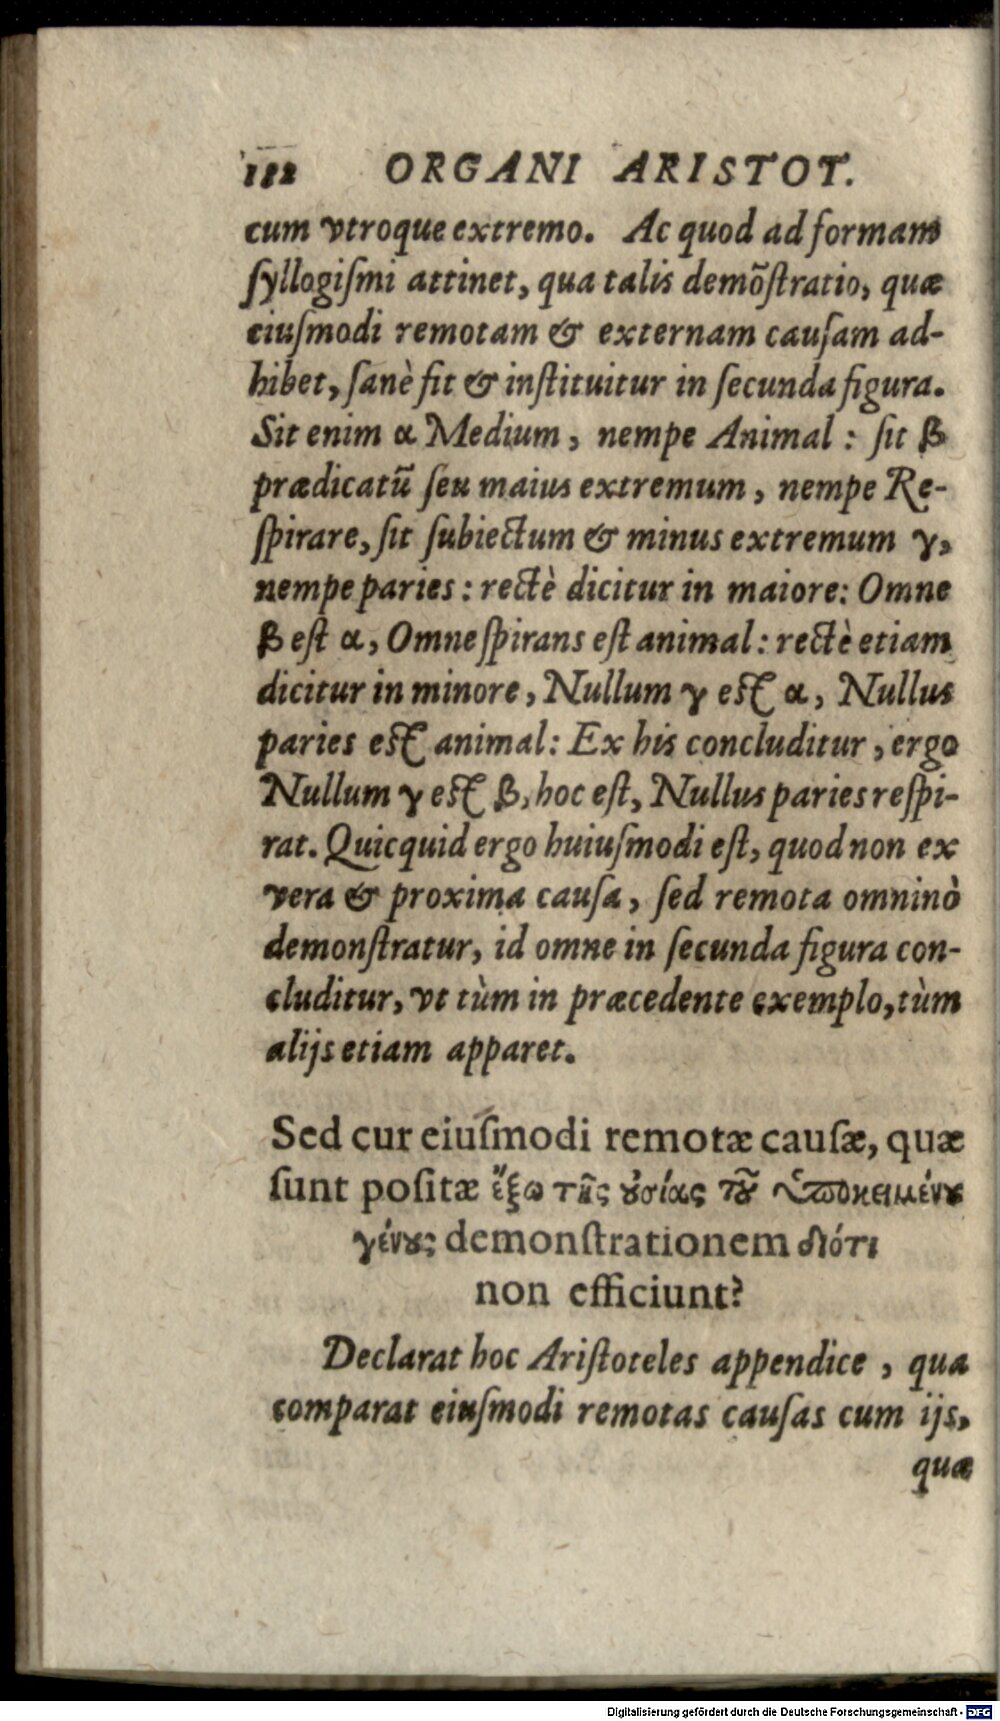 182 ORGANI ARISTOT.
cum vtroque extremo. Ac quod ad formam
ſyllogiſmi attinet, qua talis demõſtratio, quæ
eiuſmodi remotam & externam cauſam ad-
hibet, ſanè fit & inſtituitur in ſecunda figura.
Sit enim α Medium, nempe Animal: ſit β
prædicatũ ſeu maius extremum, nempe Re-
ſpirare, ſit ſubiectum & minus extremum γ,
nempe paries: rectè dicitur in maiore: Omne
β eſt α, Omne ſpirans eſt animal: rectè etiam
dicitur in minore, Nullum γ eſt α, Nullus
paries eſt animal: Ex his concluditur, ergo
Nullum γ eſt β, hoc eſt, Nullus paries reſpi-
rat. Quicquid ergo huiuſmodi eſt, quod non ex
vera & proxima cauſa, ſed remota omninò
demonſtratur, id omne in ſecunda figura con-
cluditur, vt tùm in præcedente exemplo, tùm
alijs etiam apparet.
Sed cur eiuſmodi remotæ cauſæ, quæ
ſunt poſitæ ἔξω τῆς ȣσίας τȣ͂ ὑποκειμένȣ
γένȣς demonſtrationem διότι
non efficiunt?
Declarat hoc Ariſtoteles appendice, qua
comparat eiuſmodi remotas cauſas cum ijs,
quæ
Digitalisierung gefördert durch die Deutsche Forschungsgemeinschaft - DFG